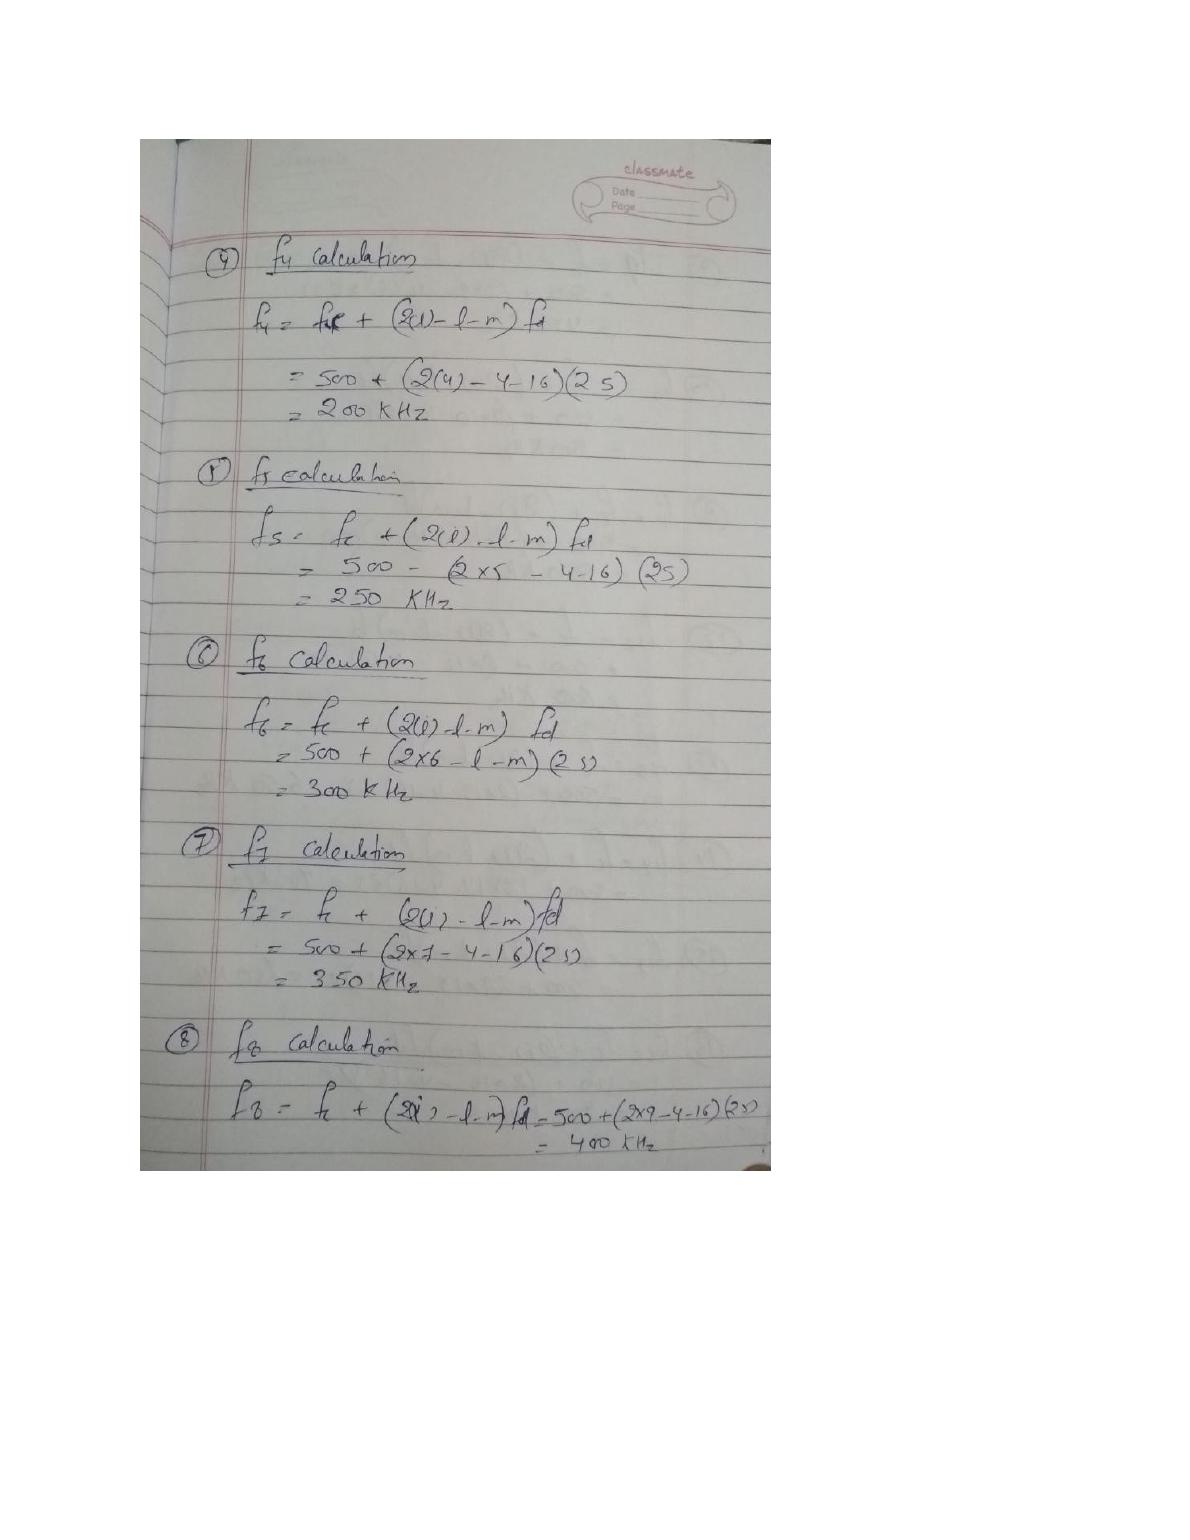 classmate
Date
Page
④ f4 calculation
f4 = fc + (2(i) - l - m) fd
= 500 + (2(4) - 4 - 16)(25)
= 200 KHz
⑤ f5 calculation
f5 = fc + (2(i) - l - m) fd
= 500 - (2×5 - 4-16) (25)
= 250 KHz
⑥ f6 calculation
f6 = fc + (2(i) - l - m) fd
= 500 + (2×6 - l - m) (25)
= 300 KHz
⑦ f7 calculation
f7 = fc + (2(i) - l - m) fd
= 500 + (2×7 - 4 - 16)(25)
= 350 KHz
⑧ f8 calculation
f8 = fc + (2(i) - l - m) fd = 500 + (2×9 - 4 - 16)(25)
= 400 KHz